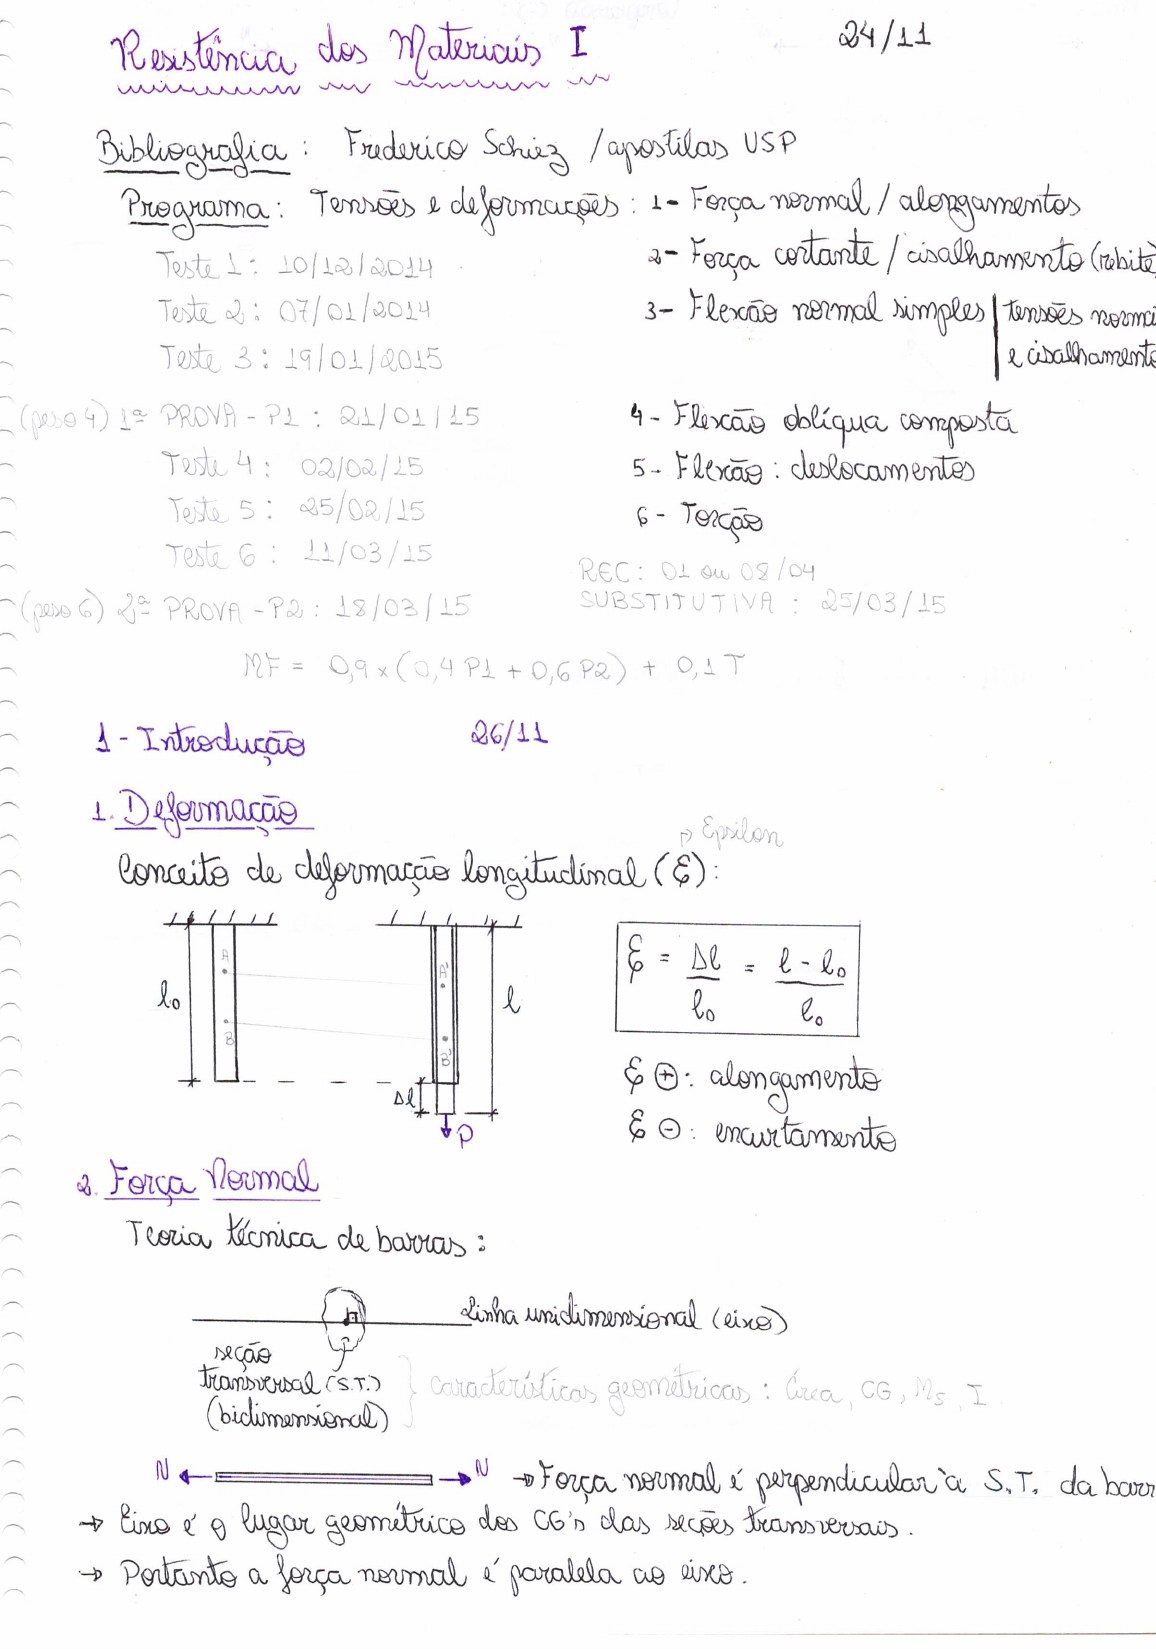 Resistência dos Materiais I 24/11
Bibliografia: Frederico Schiez / apostilas USP
Programa: Tensões e deformações: 1- Força normal / alongamentos
Teste 1: 10/12/2014
2- Força cortante / cisalhamento (rebite
Teste 2: 07/01/2014
3- Flexão normal simples | tensões norma
e cisalhamento
Teste 3: 19/01/2015
(peso 4) 1ª PROVA - P1: 21/01/15
4- Flexão oblíqua composta
Teste 4: 02/02/15
5- Flexão: deslocamentos
Teste 5: 25/02/15
6- Torção
Teste 6: 11/03/15
REC: 01 ou 08/04
(peso 6) 2ª PROVA - P2: 18/03/15
SUBSTITUTIVA: 25/03/15
MF = 0,9 x (0,4 P1 + 0,6 P2) + 0,1 T
1 - Introdução 26/11
1. Deformação
→ Epsilon
Conceito de deformação longitudinal (ε):
l₀ A B A' B' l Δl P
ε = Δl/l₀ = (l - l₀)/l₀
ε ⊕: alongamento
ε ⊖: encurtamento
2. Força Normal
Teoria técnica de barras:
Linha unidimensional (eixo)
seção
transversal (S.T.)
(bidimensional)
} características geométricas: área, CG, Ms, I
N N → Força normal é perpendicular à S.T. da barr
→ Eixo é o lugar geométrico dos CG's das seções transversais.
→ Portanto a força normal é paralela ao eixo.